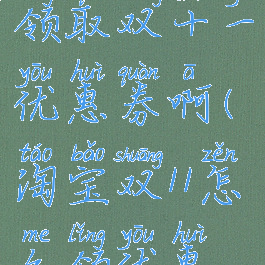 领取双十一
yōu huì quàn ā
优惠券啊(
táo bǎo shuāng zěn
淘宝双11怎
me lǐng yōu huì
么领优惠